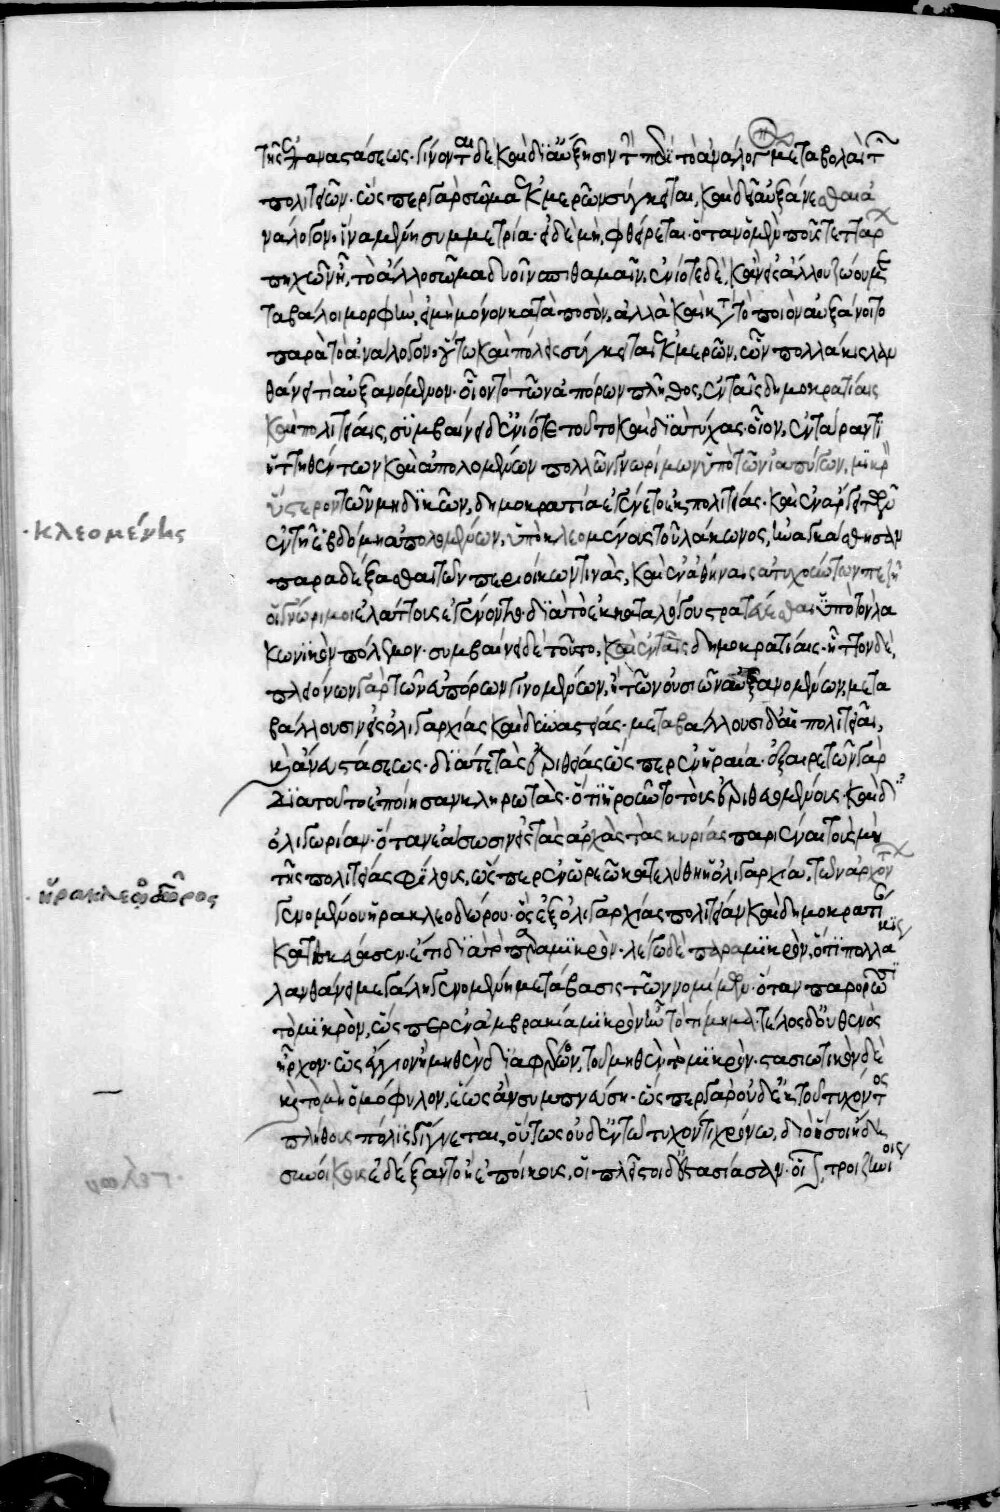 τῆς ἐπαναστάσεως. γίνονται δὲ καὶ δι' αὔξησιν τὴν παρὰ τὸ ἀνάλογον μεταβολαὶ τῶν
πολιτειῶν. ὥσπερ γὰρ σῶμα ἐκ μερῶν σύγκειται, καὶ δεῖ αὐξάνεσθαι ἀ
νάλογον. ἵνα μένη συμμετρία. εἰ δὲ μὴ, φθείρεται. ὅταν ὁ μὲν ποῦς τεττάρων
πηχῶν ἦ, τὸ ἄλλο σῶμα δυοῖν σπιθαμαῖν, ἐνίοτε δὲ, κἂν εἰς ἄλλου ζώου με
ταβάλοι μορφὴν, εἰ μὴ μόνον κατὰ ποσὸν, ἀλλὰ καὶ κατὰ τὸ ποιὸν αὐξάνοιτο
παρὰ τὸ ἀνάλογον. οὕτω καὶ πόλις σύγκειται ἐκ μερῶν, ὧν πολλάκις λαν
θάνει τὶ αὐξανόμενον. οἷον τὸ τῶν ἀπόρων πλῆθος, ἐν ταῖς δημοκρατίαις
καὶ πολιτείαις, συμβαίνει δ' ἐνίοτε τοῦτο καὶ διὰ τύχας. οἷον, ἐν τάραντι
ἡττηθέντων καὶ ἀπολομένων πολλῶν γνωρίμων ὑπὸ τῶν ἰαπύγων, μικρὸν
ὕστερον τῶν μηδικῶν, δημοκρατία ἐγένετο ἐκ πολιτείας. καὶ ἐν ἄργει τῶν
ἐν τῆ ἑβδόμη ἀπολομένων, ὑπὸ κλεομένους τοῦ λάκωνος, ἠναγκάσθησαν
παραδέξασθαι τῶν περιοίκων τινὰς, καὶ ἐν ἀθήναις ἀτυχούντων πεζῆ
οἱ γνώριμοι ἐλάττους ἐγένοντο. διὰ τὸ ἐκ καταλόγου στρατεύεσθαι ὑπὸ τὸν λα
κωνικὸν πόλεμον. συμβαίνει δὲ τοῦτο, καὶ ἐν ταῖς δημοκρατίαις. ἧττον δέ,
πλειόνων γὰρ τῶν ἀπόρων γινομένων, ἢ τῶν οὐσιῶν αὐξανομένων, μετα
βάλλουσιν εἰς ὀλιγαρχίας καὶ δυναστείας. μεταβάλλουσι δ' αἱ πολιτεῖαι,
κἂν ἄνευ στάσεως. διά τε τὰς ἐριθείας ὥσπερ ἐν ἡραία. ἐξ αἱρετῶν γὰρ
διὰ τοῦτο ἐποίησαν κληρωτὰς. ὅτι ἡροῦντο τοὺς ἐριθευομένους. καὶ δι'
ὀλιγωρίαν. ὅταν ἐάσωσιν εἰς τὰς ἀρχὰς τὰς κυρίας παριέναι τοὺς μὴ
τῆς πολιτείας φίλους, ὥσπερ ἐν ὠρεῶ κατελύθη ἡ ὀλιγαρχία, τῶν ἀρχόντων
γενομένου ἡρακλεοδώρου. ὃς ἐξ ὀλιγαρχίας πολιτείαν καὶ δημοκρατίαν
κατεσκεύασεν. ἔτι διὰ τὸ παρὰ μικρὸν. λέγω δὲ παρὰ μικρὸν, ὅτι πολλάκις
λανθάνει μεγάλη γενομένη μετάβασις τῶν νομίμων. ὅταν παρορῶσι
τὸ μικρὸν, ὥσπερ ἐν ἀμβρακία μικρὸν ἦν τὸ τίμημα. τέλος δ' οὐθενὸς
ἦρχον. ὡς ἔγγιον ἢ μηθὲν διαφέρον, τοῦ μηθὲν τὸ μικρόν. στασιωτικὸν δὲ
καὶ τὸ μὴ ὁμόφυλον, ἕως ἂν συμπνεύση. ὥσπερ γὰρ οὐδ' ἐκ τοῦ τυχόντος
πλήθους πόλις γίγνεται, οὕτως οὐδ' ἐν τῶ τυχόντι χρόνω, διὸ ὅσοι ἤδη
συνοίκους ἐδέξαντο ἢ ἐποίκους, οἱ πλεῖστοι διεστασίασαν. οἷον, τροιζηνίοις
·κλεομένης
·ἡρακλεόδωρος